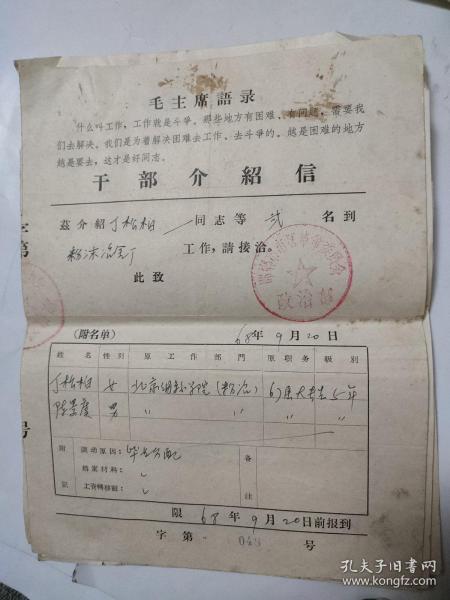 毛主席語录
什么叫工作，工作就是斗争。那些地方有困难、有问题，需要我
们去解决。我们是为着解决困难去工作、去斗争的。越是困难的地方
越是要去，这才是好同志。
干部介紹信
茲介紹丁松柏 同志等 弍 名到
粉沫冶金厂 工作，請接洽。
此致
字第
号
(附名单) 68年9月20日
姓名 性别 原工作部門 原职务 級別
丁松柏 女 北京钢铁学院（粉冶）
男 〃 〃 〃
附記
調动原因：毕业分配
档案材料：
工資轉移証：
备註
限 68年9月20日前报到
字第 号
孔夫子旧书网
www.kongfz.com